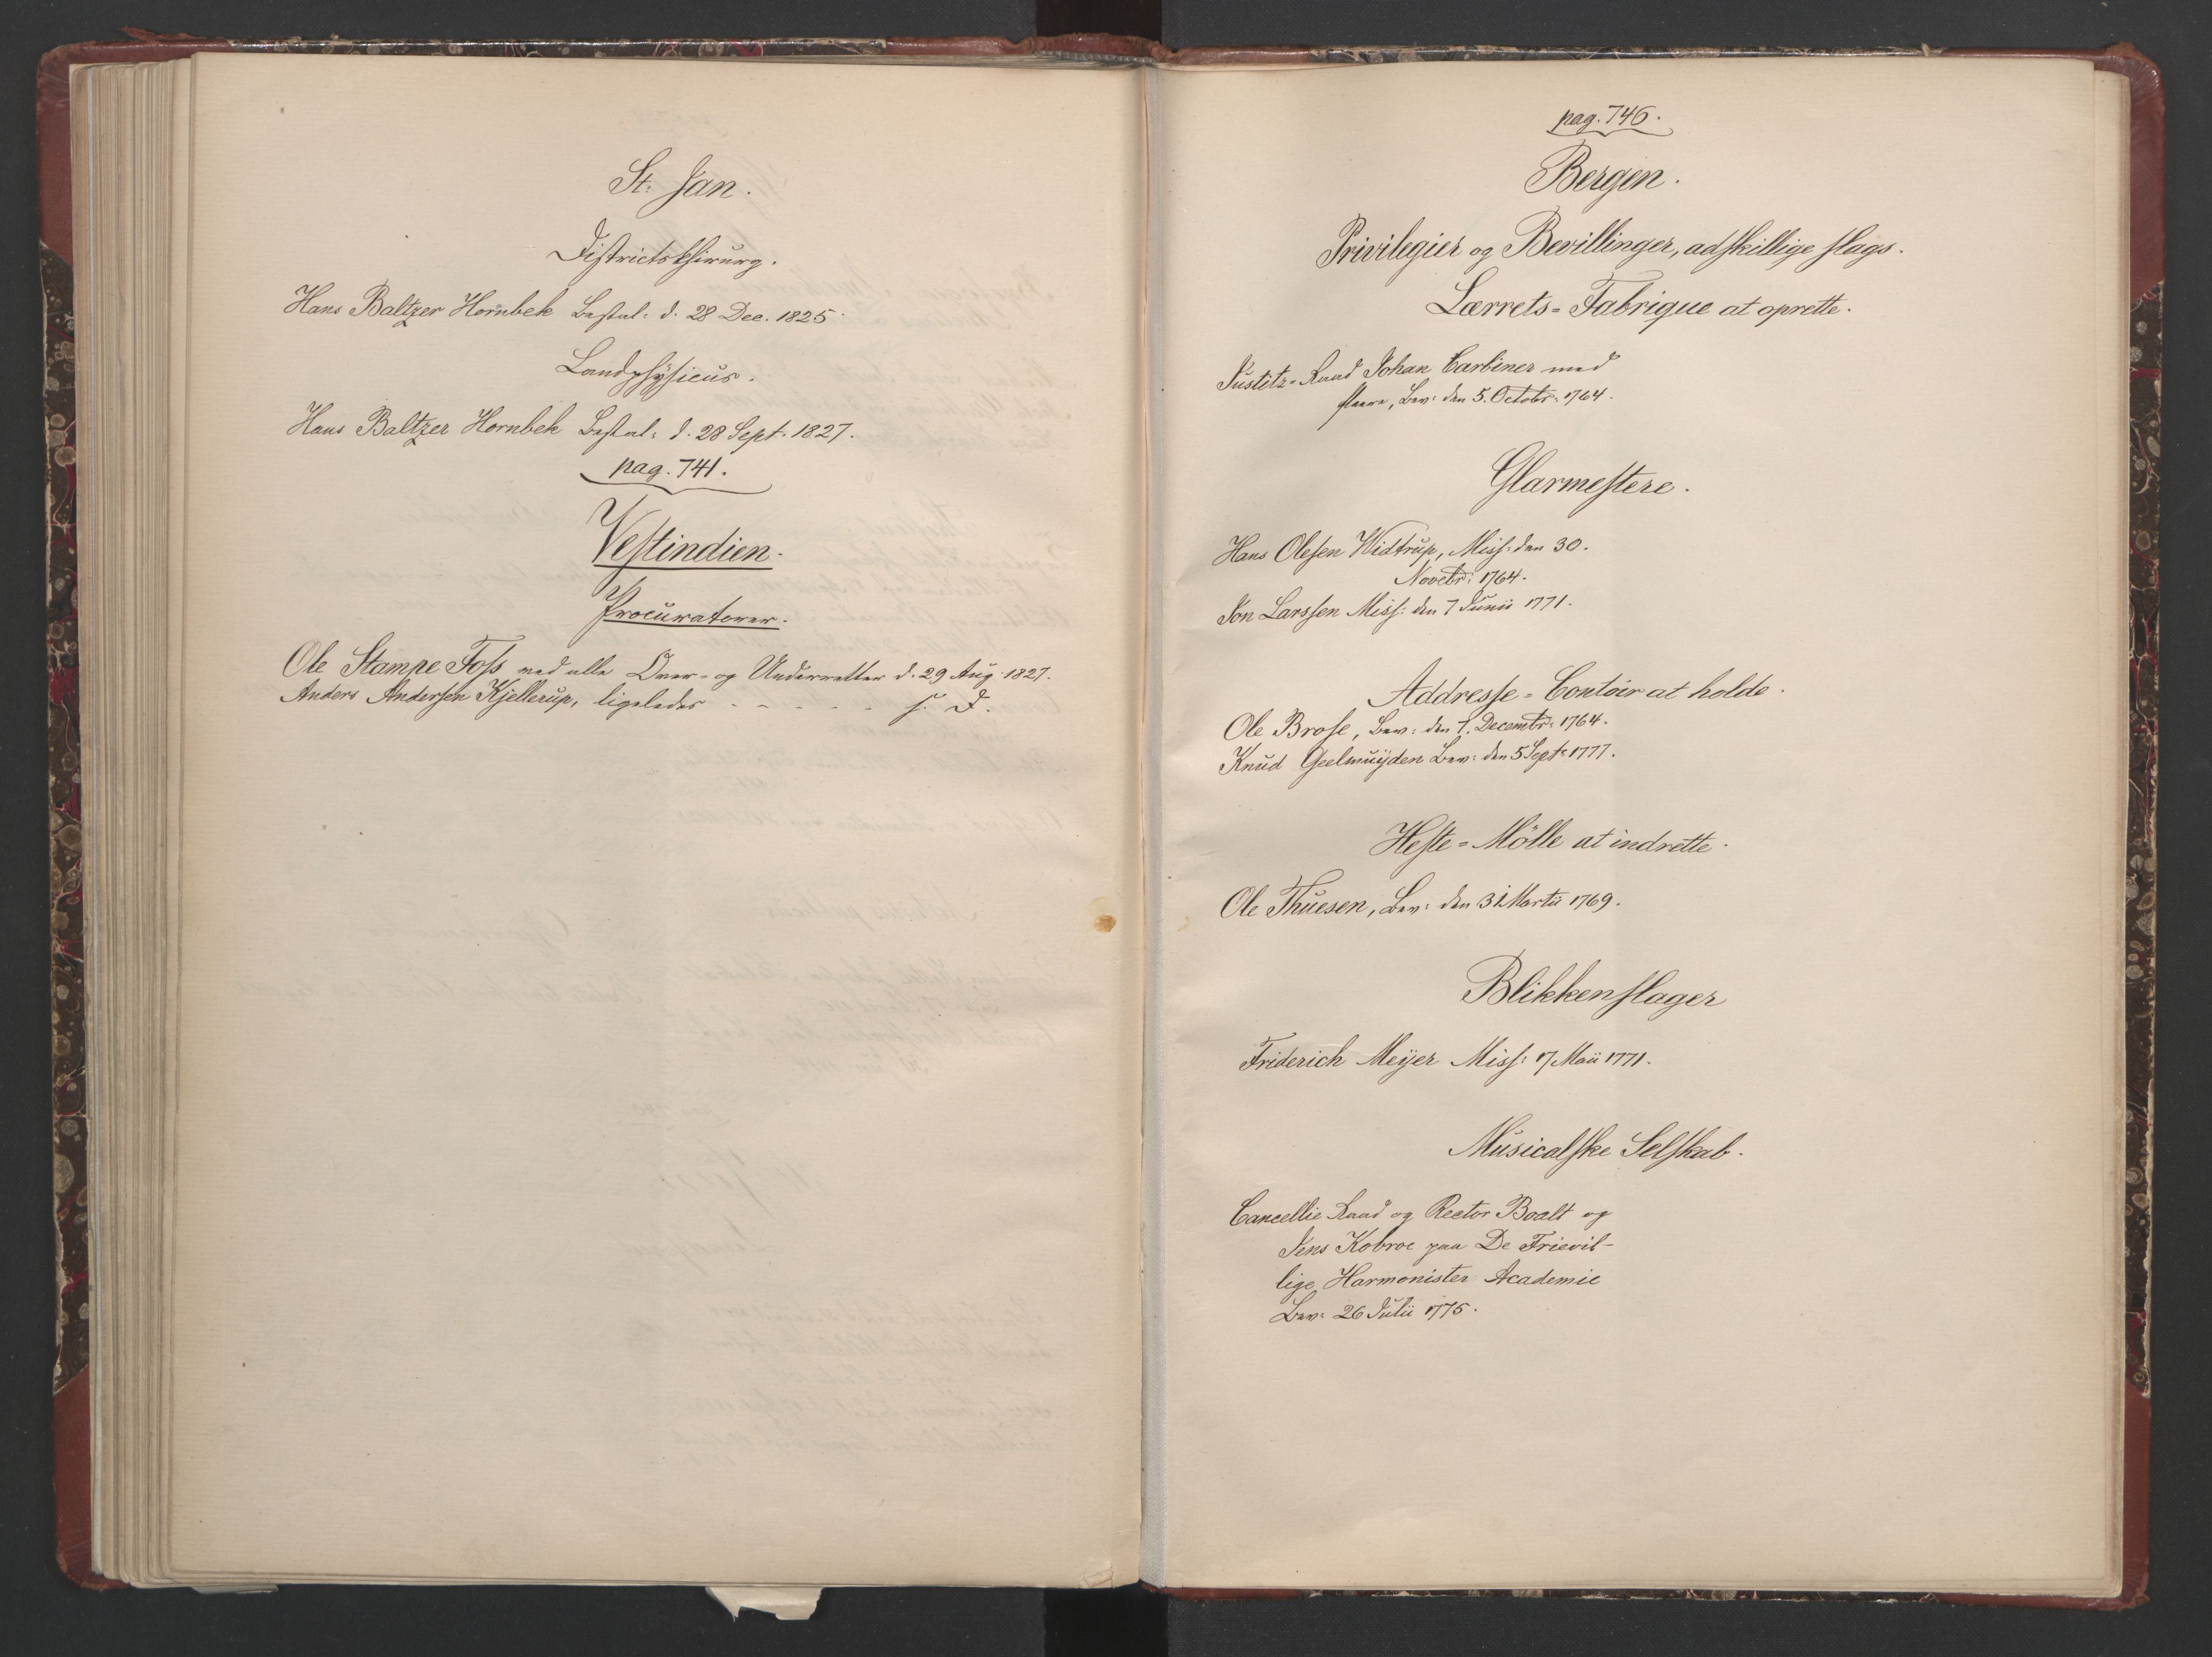 St. Jan.
Districtskhirurg.
Hans Baltzer Hornbek Bestal: d. 28 Dec. 1825.
Landphÿsicus.
Hans Baltzer Hornbek Bestal: d. 28 Sept. 1827.
pag. 741.
Vestindien.
Procuratorer.
Ole Stampe Foss ved alle Over- og Underretter d. 29 Aug. 1827.
Anders Andersen Kjellerup, ligeledes - - - - - s. D.
pag. 746.
Bergen.
Privilegier og Bevillinger, adskillige slags.
Lærrets-Fabrique at oprette.
Justitz-Raad Johan Carbiner med
fleere, Bev: den 5. Octobr: 1764.
Glarmestere.
Hans Olesen Widtrup, Miss: den 30.
Novebr: 1764.
Jon Larssen Miss: den 7 Junii 1771.
Addresse-Contoir at holde.
Ole Brose, Bev: den 7. Decembr: 1764.
Knud Geelmuÿden Bev: den 5 Sept: 1777.
Heste-Mölle at indrette.
Ole Thuesen, Bev: den 31 Martii 1769.
Blikkenslager
Friderich Meÿer Miss: 17 Maii 1771.
Musicalske Selskab.
Cancellie Raad og Rector Boalt og
Jens Kobroe paa De Frievil-
lige Harmonister Academie
Bev: 26 Julii 1775.